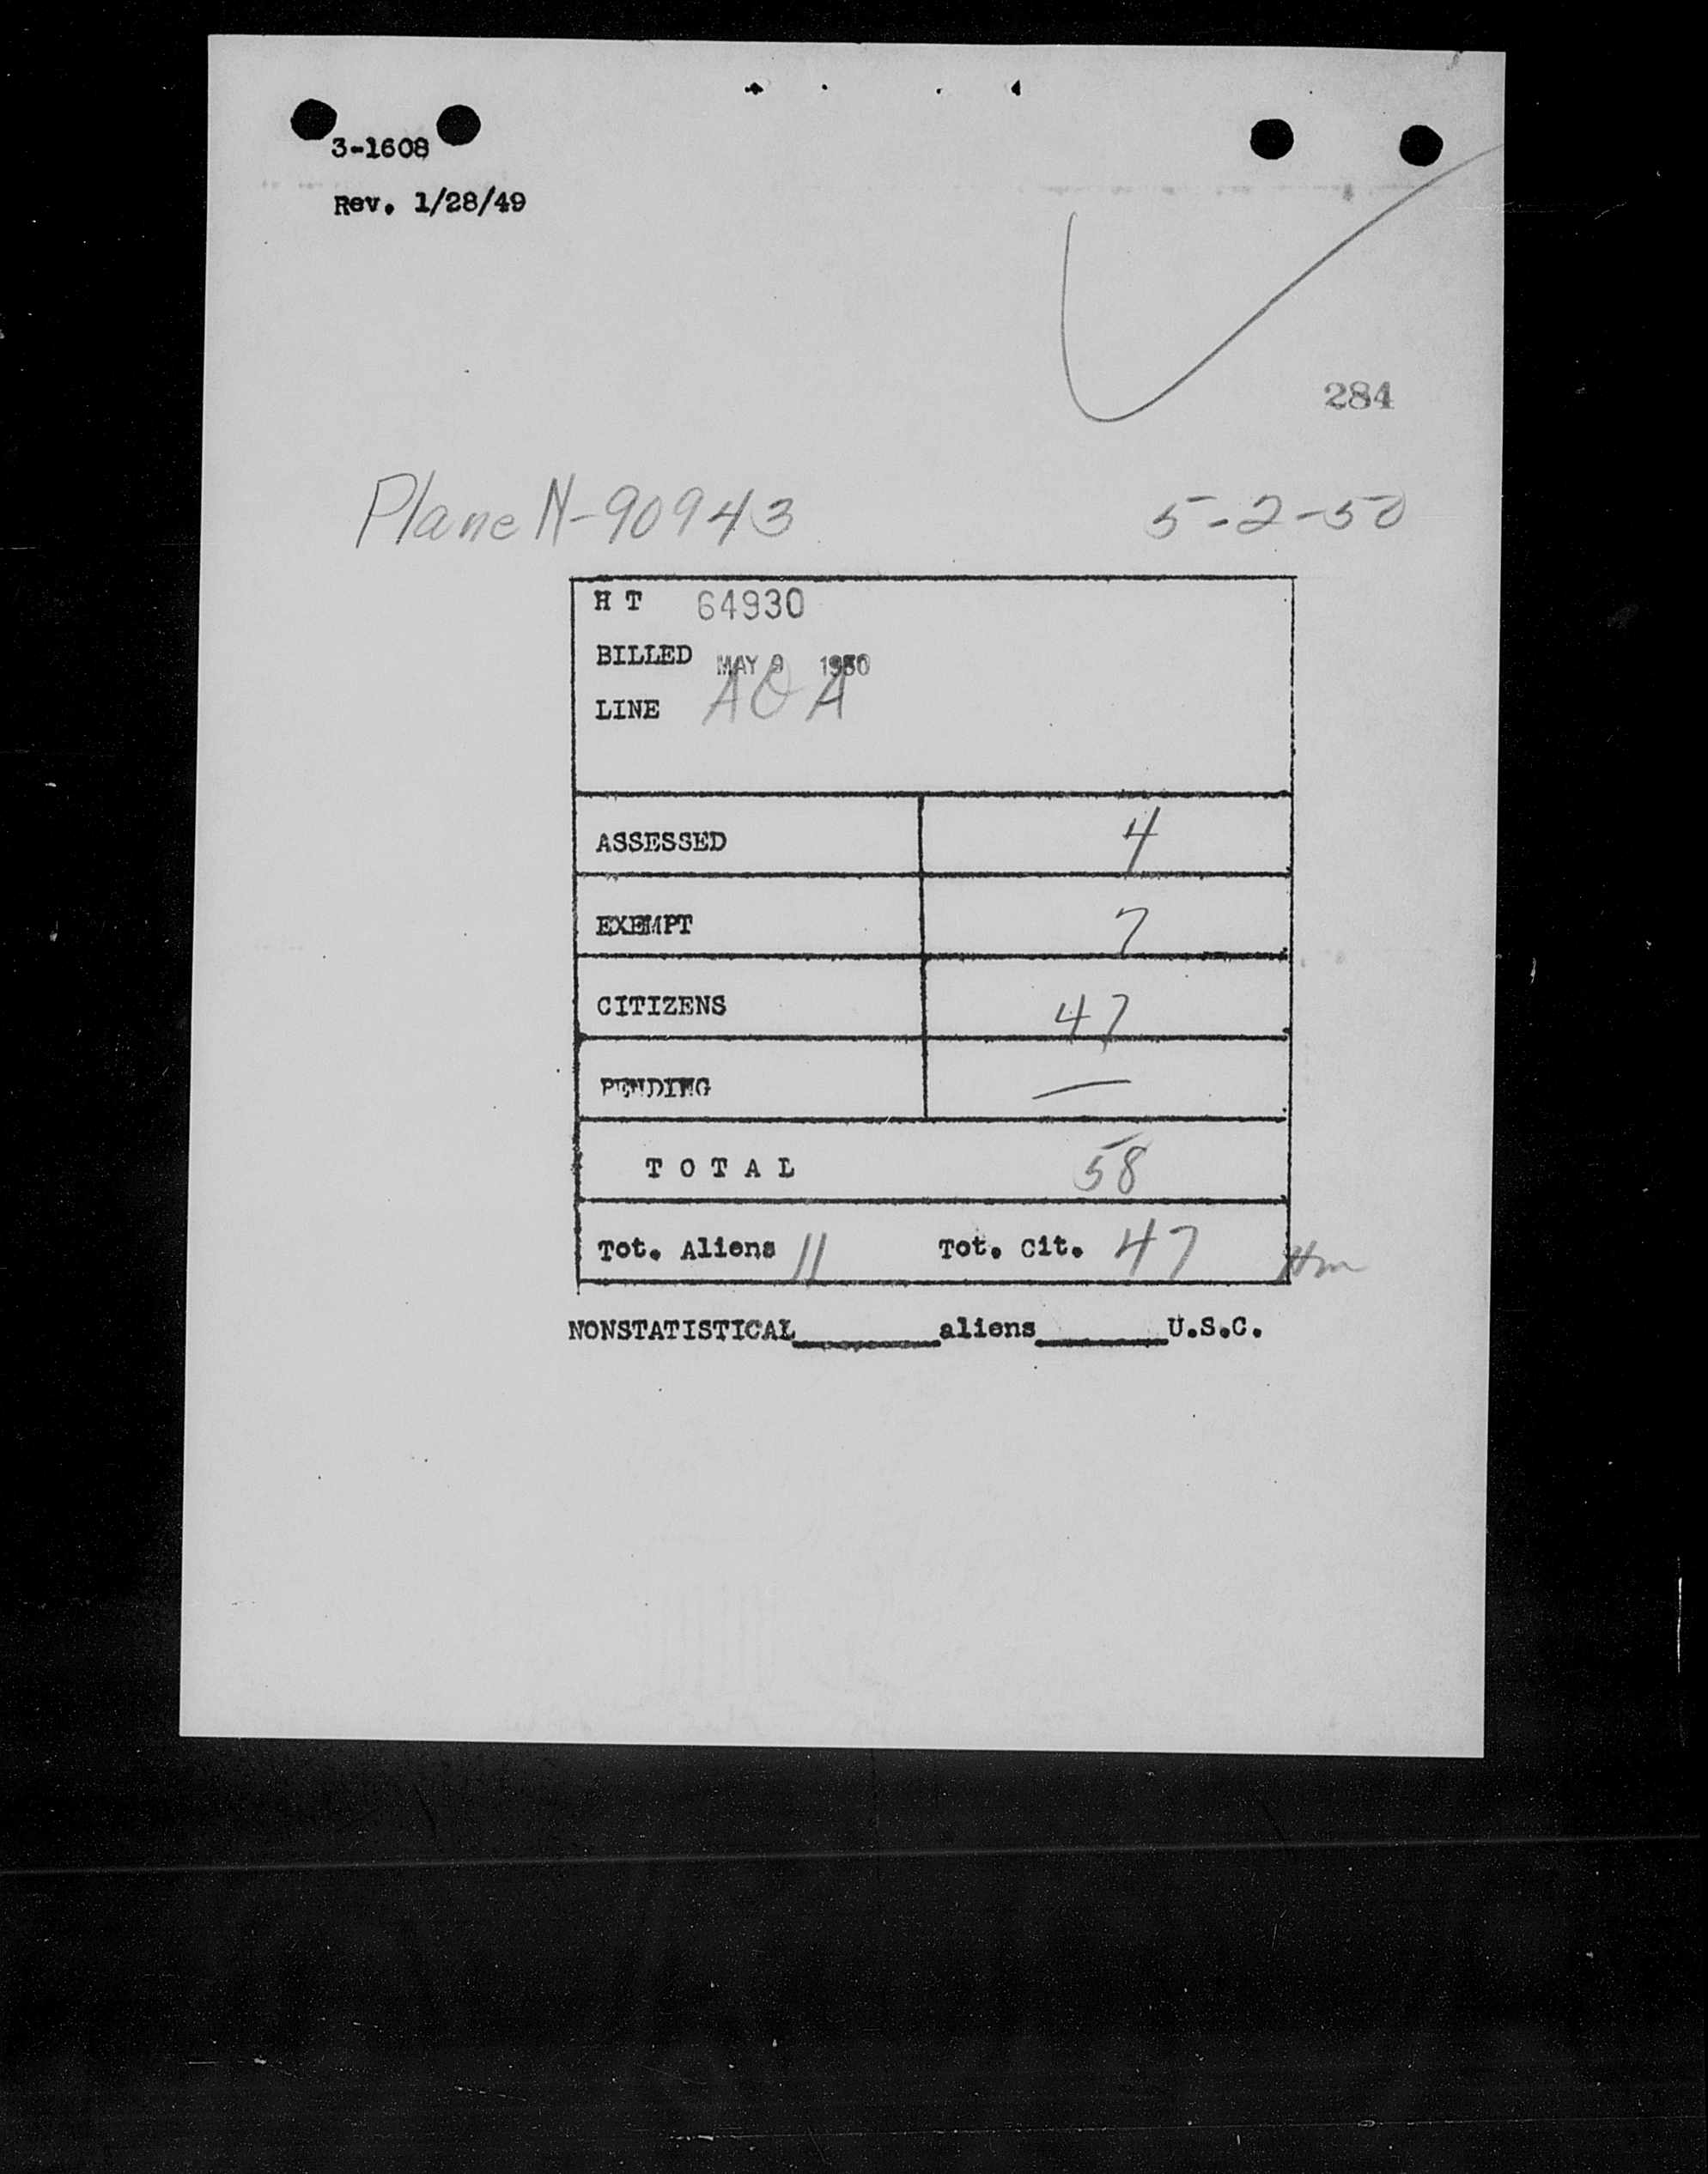 3-1608
Rev. 1/28/49
284
Plane N-90943 5-2-50
H T 64930
BILLED MAY 9 1950
LINE AOA
ASSESSED 4
EXEMPT 7
CITIZENS 47
PENDING —
T O T A L 58
Tot. Aliens 11 Tot. Cit. 47
NONSTATISTICAL________aliens_______U.S.C.